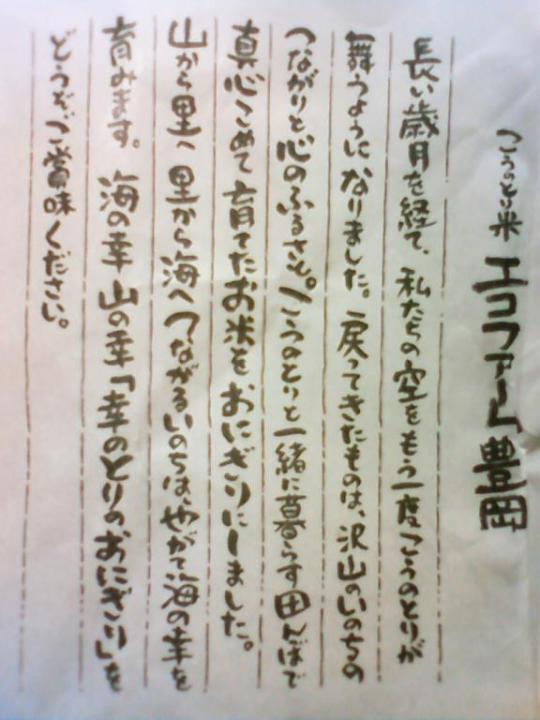 こうのとり米 エコファーム豊岡
長い歳月を経て、私たちの空をもう一度こうのとりが
舞うようになりました。戻ってきたものは、沢山のいのちの
つながりと心のふるさと。こうのとりと一緒に暮らす田んぼで
真心こめて育てたお米をおにぎりにしました。
山から里へ 里から海へつながるいのちはやがて海の幸を
育みます。海の幸 山の幸「幸のとりのおにぎり」を
どうぞご賞味ください。